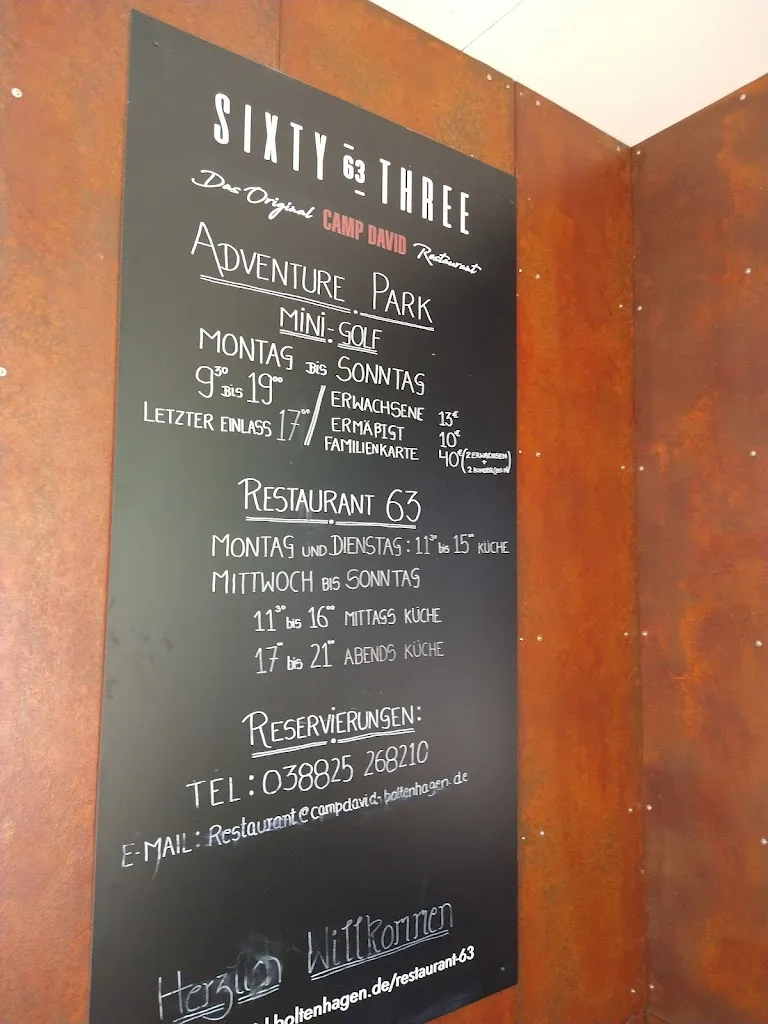 SIXTY 63 THREE
Das Original CAMP DAVID Restaurant
ADVENTURE PARK
MINI-GOLF
MONTAG BIS SONNTAG
9³⁰ BIS 19⁰⁰
LETZTER EINLASS 17⁰⁰
ERWACHSENE 13€
ERMÄßIGT 10€
FAMILIENKARTE 40€ (2 ERWACHSEN + 2 KINDER
RESTAURANT 63
MONTAG UND DIENSTAG: 11³⁰ bis 15⁰⁰ KÜCHE
MITTWOCH BIS SONNTAG
11³⁰ bis 16⁰⁰ MITTAGS KÜCHE
17⁰⁰ bis 21⁰⁰ ABENDS KÜCHE
RESERVIERUNGEN:
TEL: 038825 268210
E-MAIL: Restaurant@campdavid-boltenhagen.de
Herzlich Willkommen
boltenhagen.de/restaurant-63